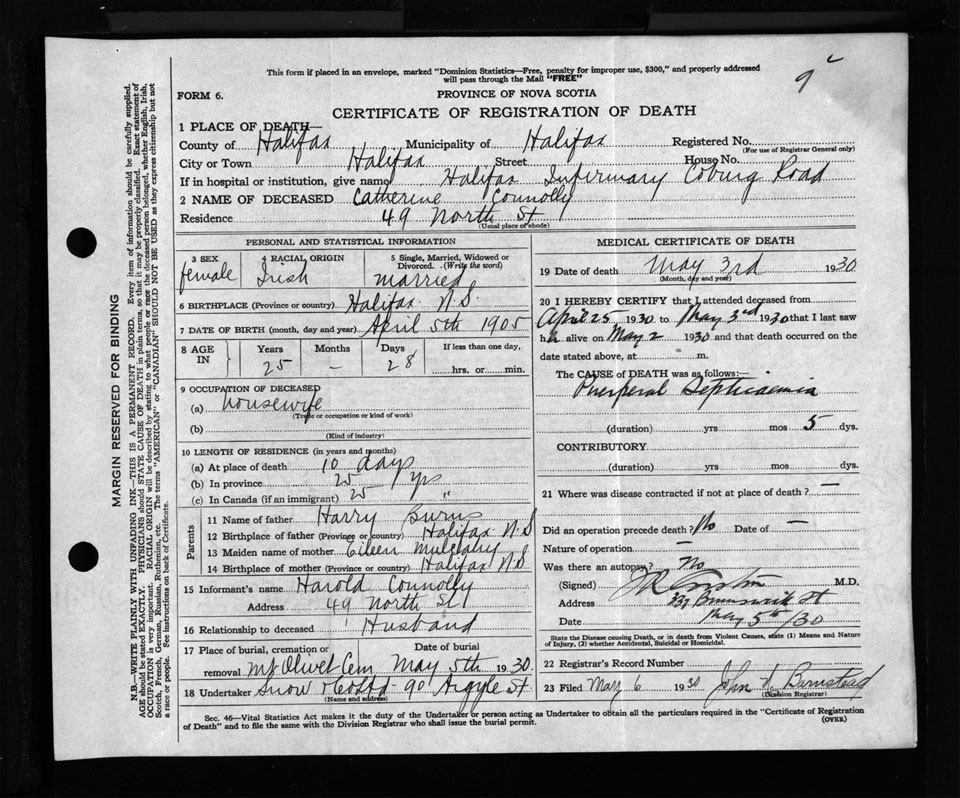 This form if placed in an envelope, marked "Dominion Statistics—Free, penalty for improper use, $300," and properly addressed
will pass through the Mail "FREE"
9
FORM 6.
PROVINCE OF NOVA SCOTIA
CERTIFICATE OF REGISTRATION OF DEATH
1 PLACE OF DEATH—
County of Halifax Municipality of Halifax Registered No.
(For use of Registrar General only)
City or Town Halifax Street House No.
If in hospital or institution, give name Halifax Infirmary Coburg Road
2 NAME OF DECEASED Catherine Connolly
Residence 49 North St
(Usual place of abode)
PERSONAL AND STATISTICAL INFORMATION
3 SEX 4 RACIAL ORIGIN 5 Single, Married, Widowed or
Divorced. (Write the word)
female Irish married
6 BIRTHPLACE (Province or country) Halifax N.S.
7 DATE OF BIRTH (month, day and year) April 5th 1905
8 AGE IN Years Months Days If less than one day,
25 – 28 hrs. or min.
9 OCCUPATION OF DECEASED
(a) housewife
(Trade or occupation or kind of work)
(b)
(Kind of industry)
10 LENGTH OF RESIDENCE (in years and months)
(a) At place of death 10 days
(b) In province 25 yrs
(c) In Canada (if an immigrant) 25 "
Parents
11 Name of father Harry Burns
12 Birthplace of father (Province or country) Halifax N.S
13 Maiden name of mother Eileen Mulcahy
14 Birthplace of mother (Province or country) Halifax N.S.
15 Informant's name Harold Connolly
Address 49 North St
16 Relationship to deceased Husband
17 Place of burial, cremation or Date of burial
removal Mt Olivet Cem May 5th 1930
18 Undertaker Snow & Co Ltd - 90 Argyle St.
(Name and address)
MEDICAL CERTIFICATE OF DEATH
19 Date of death May 3rd 1930
(Month, day and year)
20 I HEREBY CERTIFY that I attended deceased from
April 25 1930 to May 3rd 1930 that I last saw
her alive on May 2 1930 and that death occurred on the
date stated above, at m.
The CAUSE of DEATH was as follows:—
Puerperal Septicaemia
(duration) yrs mos 5 dys.
CONTRIBUTORY
(duration) yrs mos dys.
21 Where was disease contracted if not at place of death? —
Did an operation precede death? No Date of —
Nature of operation —
Was there an autopsy? No
(Signed) M.D.
Address 337 Brunswick St
Date May 5th /30
State the Disease causing Death, or in death from Violent Causes, state (1) Means and Nature
of Injury, (2) whether Accidental, Suicidal or Homicidal.
22 Registrar's Record Number
23 Filed May 6 1930 John A. Barnstead
(Division Registrar)
Sec. 46—Vital Statistics Act makes it the duty of the Undertaker or person acting as Undertaker to obtain all the particulars required in the "Certificate of Registration
of Death" and to file the same with the Division Registrar who shall issue the burial permit.
(OVER)
MARGIN RESERVED FOR BINDING
N.B.—WRITE PLAINLY WITH UNFADING INK—THIS IS A PERMANENT RECORD. Every item of information should be carefully supplied.
AGE should be stated EXACTLY. PHYSICIANS should STATE CAUSE OF DEATH in plain terms, so that it may be properly classified. Exact statement of
OCCUPATION is very important. RACIAL ORIGIN will be described by stating to what people or race the deceased person belonged, whether English, Irish,
Scotch, French, German, Russian, Ruthenian, etc. The terms "AMERICAN" or "CANADIAN" SHOULD NOT BE USED as they express citizenship but not
a race or people. See instructions on back of Certificate.